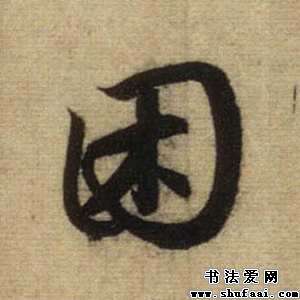 困
书法爱网
www.shufaai.com